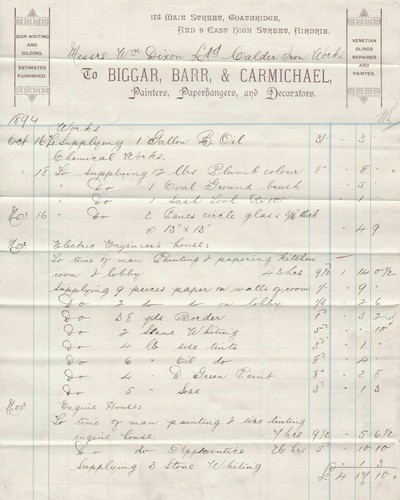 175 MAIN STREET, COATBRIDGE,
AND 9 EAST HIGH STREET, AIRDRIE.
SIGN WRITING
AND
GILDING.
ESTIMATES
FURNISHED.
VENETIAN
BLINDS
REPAIRED
AND
PAINTED.
Messrs Wm Dixon Ltd Calder Iron Works.
To BIGGAR, BARR, & CARMICHAEL,
Painters, Paperhangers, and Decorators.
1894 Works
Oct 16 To Supplying 1 Gallon B. Oil 3/ " 3 "
Chemical Works.
" 18 To Supplying 12 lbs Plumb colour 8 " 8 "
" Do 1 Oval Ground brush " 5 "
" Do 1 Sash Tool " 1
Nov 16 " Do 2 Panes circle glass
@ 13" x 13" " 4 9
Nov. Electric Engineer's house:
To time of man Painting & papering kitchen
room & lobby 43 hrs 9½ 1 14 0½
Supplying 9 pieces paper on walls of room 1/ " 9 "
Do 2 do do on lobby 1/3 " 2 6
Do 38 yds Border 1 " 3 2
Do 2 Stone Whiting 5 " " 10
Do 4 lb size tints 3 " 1 "
Do 6 " Oil do 8 " 4 "
Do 4 " D Green Paint 8 " 2 8
Do 5 " Size 3 " 1 3
Nov Engine House:
To time of man painting & size tinting
engine house. 7 hrs 9½ " 5 6½
" do Apprentice 26 hrs 5 " 10 10
Supplying 3 Stone Whiting " 1 3
£ 4 17 10